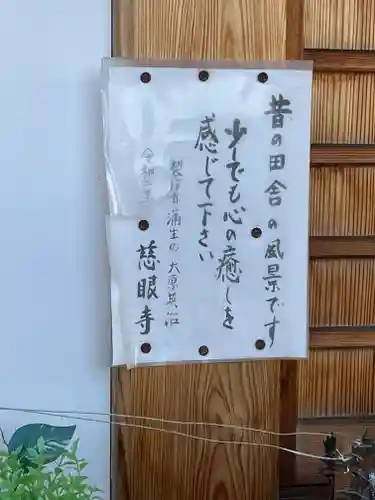 昔の田舎の風景です
少しでも心の癒しを
感じて下さい
製作者蒲生の大原英治
令和二年
慈眼寺